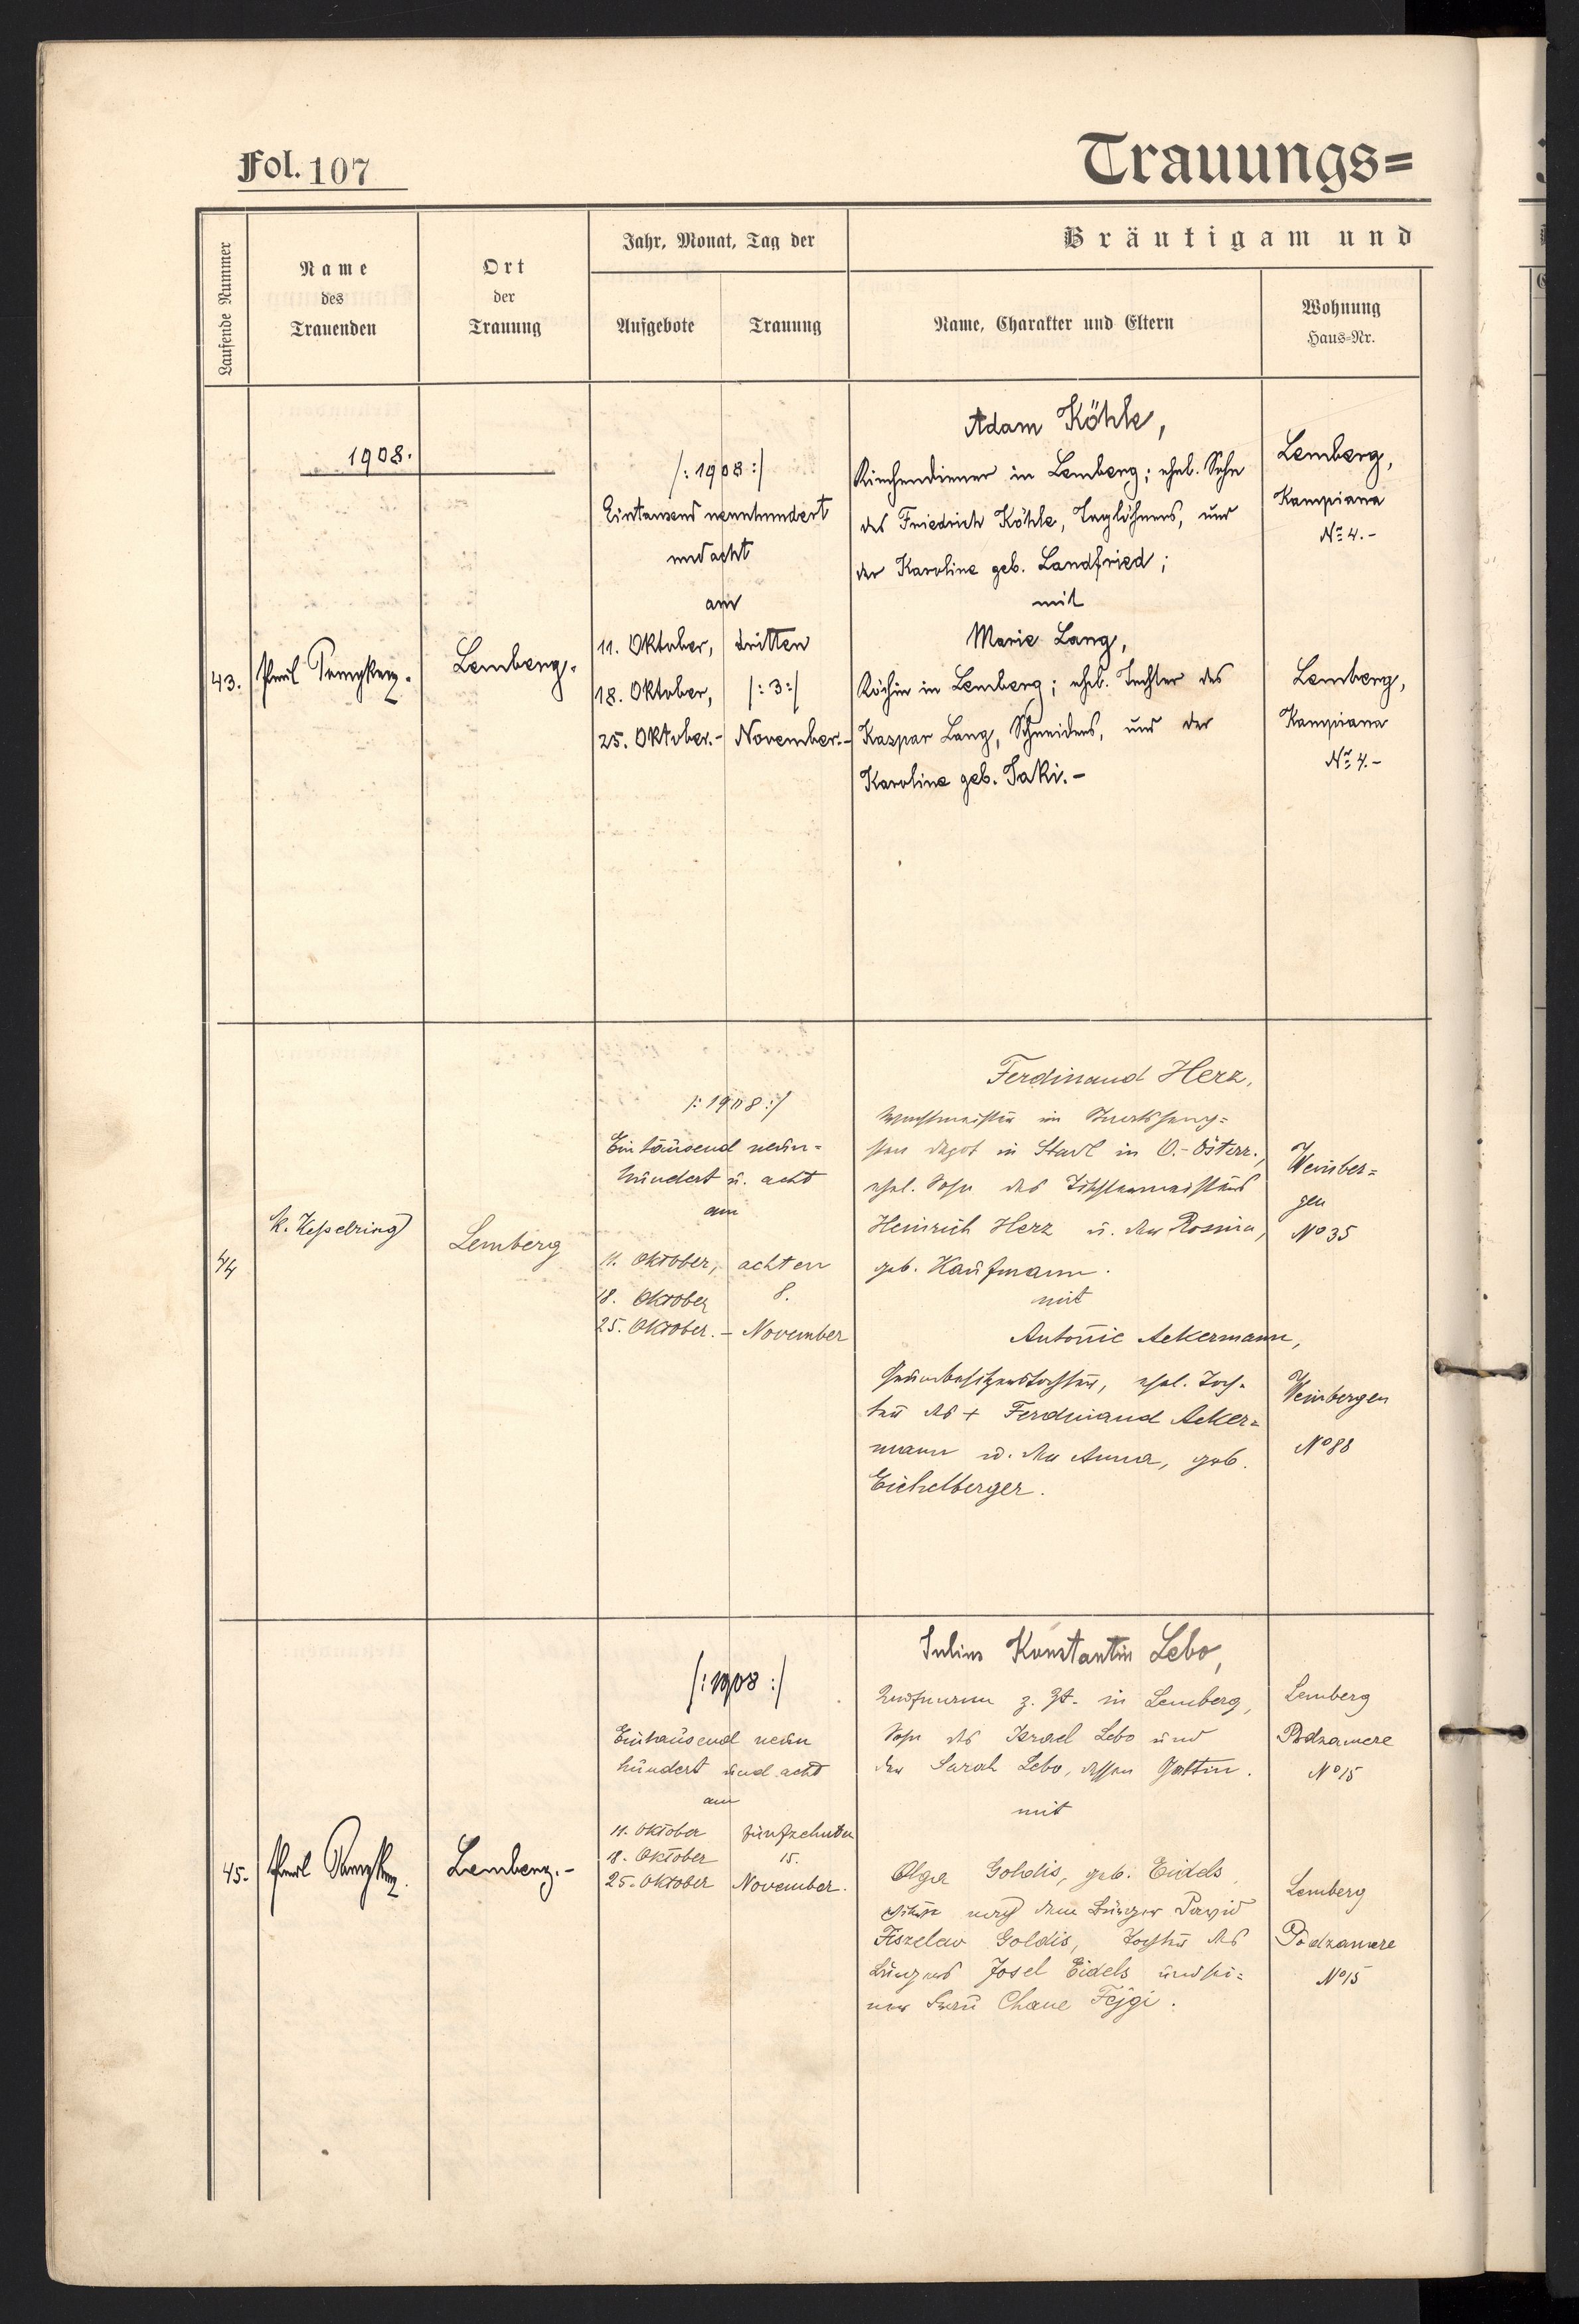 Fol. 107
Trauungs=
Laufende Nummer
Name
des
Trauenden
Ort
der
Trauung
Jahr, Monat, Tag der
Aufgebote
Trauung
Bräutigam und
Name, Charakter und Eltern
Wohnung
Haus=Nr.
1908.
43.
Lemberg.
/: 1908 :/
Eintausend neunhundert
und acht
am
11. Oktober,
18. Oktober,
25. Oktober.-
dritten
/: 3 :/
November.-
Adam Köhle,
Kirchendiener in Lemberg; ehel. Sohn
des Friedrich Köhle, Taglöhners, und
der Karoline geb. Landfried;
mit
Marie Lang,
Köchin in Lemberg; ehel. Tochter des
Kaspar Lang, Schneiders, und der
Karoline geb. Saki.-
Lemberg,
Kampiana
No 4.-
Lemberg,
Kampiana
No 4.-
44
K. Kesselring
Lemberg
/: 1908 :/
Eintausend neun=
hundert u. acht
am
11. Oktober,
18. Oktober
25. Oktober.-
achten
8.
November
Ferdinand Herz,
Wachtmeister im
in Stadl in O.-Österr.,
ehel. Sohn des Tischlermeisters
Heinrich Herz u. der Rosina,
geb. Kaufmann.
mit
Antonie Ackermann,
Grundbesitzerstochter, ehel. Toch-
ter des + Ferdinand Acker=
mann u. der Anna, geb.
Eichelberger.
Weinber=
gen
No 35
Weinbergen
No 88
45.
Lemberg.-
/: 1908 :/
Eintausend neun
hundert und acht
am
11. Oktober
18. Oktober
25. Oktober
fünfzehnten
15.
November.
Julius Konstantin Lebo,
z. Zt. in Lemberg,
Sohn des Israel Lebo und
der Sarah Lebo, dessen Gattin.
mit
Olga Goldis, geb. Eidels,
Witwe nach dem Bürger David
Fiszelew Goldis, Tochter des
Bürgers Josel Eidels und sei=
ner Frau Chane Fejgi.
Lemberg
Podzamcze
No 15
Lemberg
Podzamcze
No 15